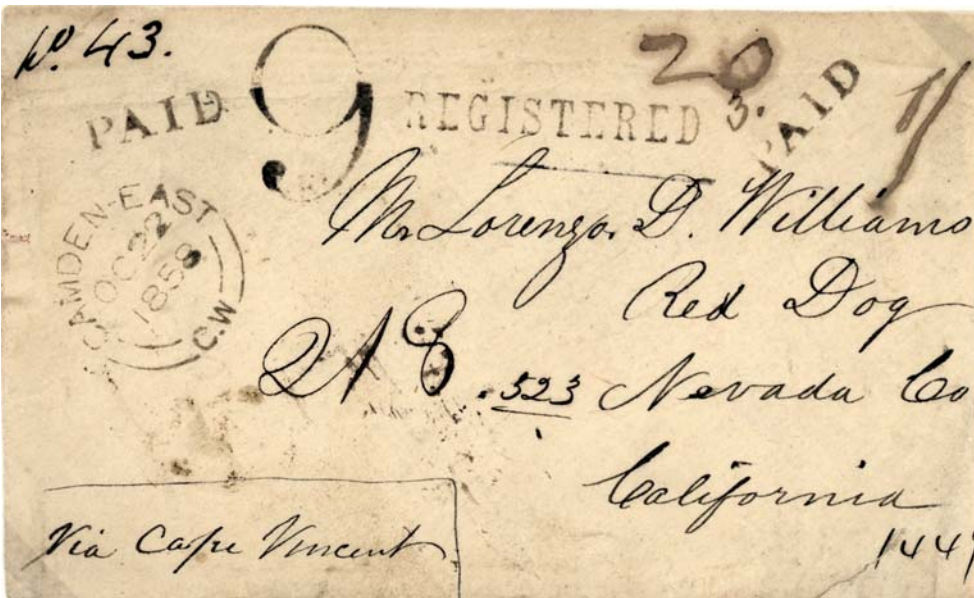 No. 43.
PAID 9 REGISTERED 20 3. PAID
CAMDEN-EAST
OC 22
1858
C.W
Mr Lorenzo. D. Williams
Red Dog
218 . 523 Nevada Co
California
Via Cape Vincent